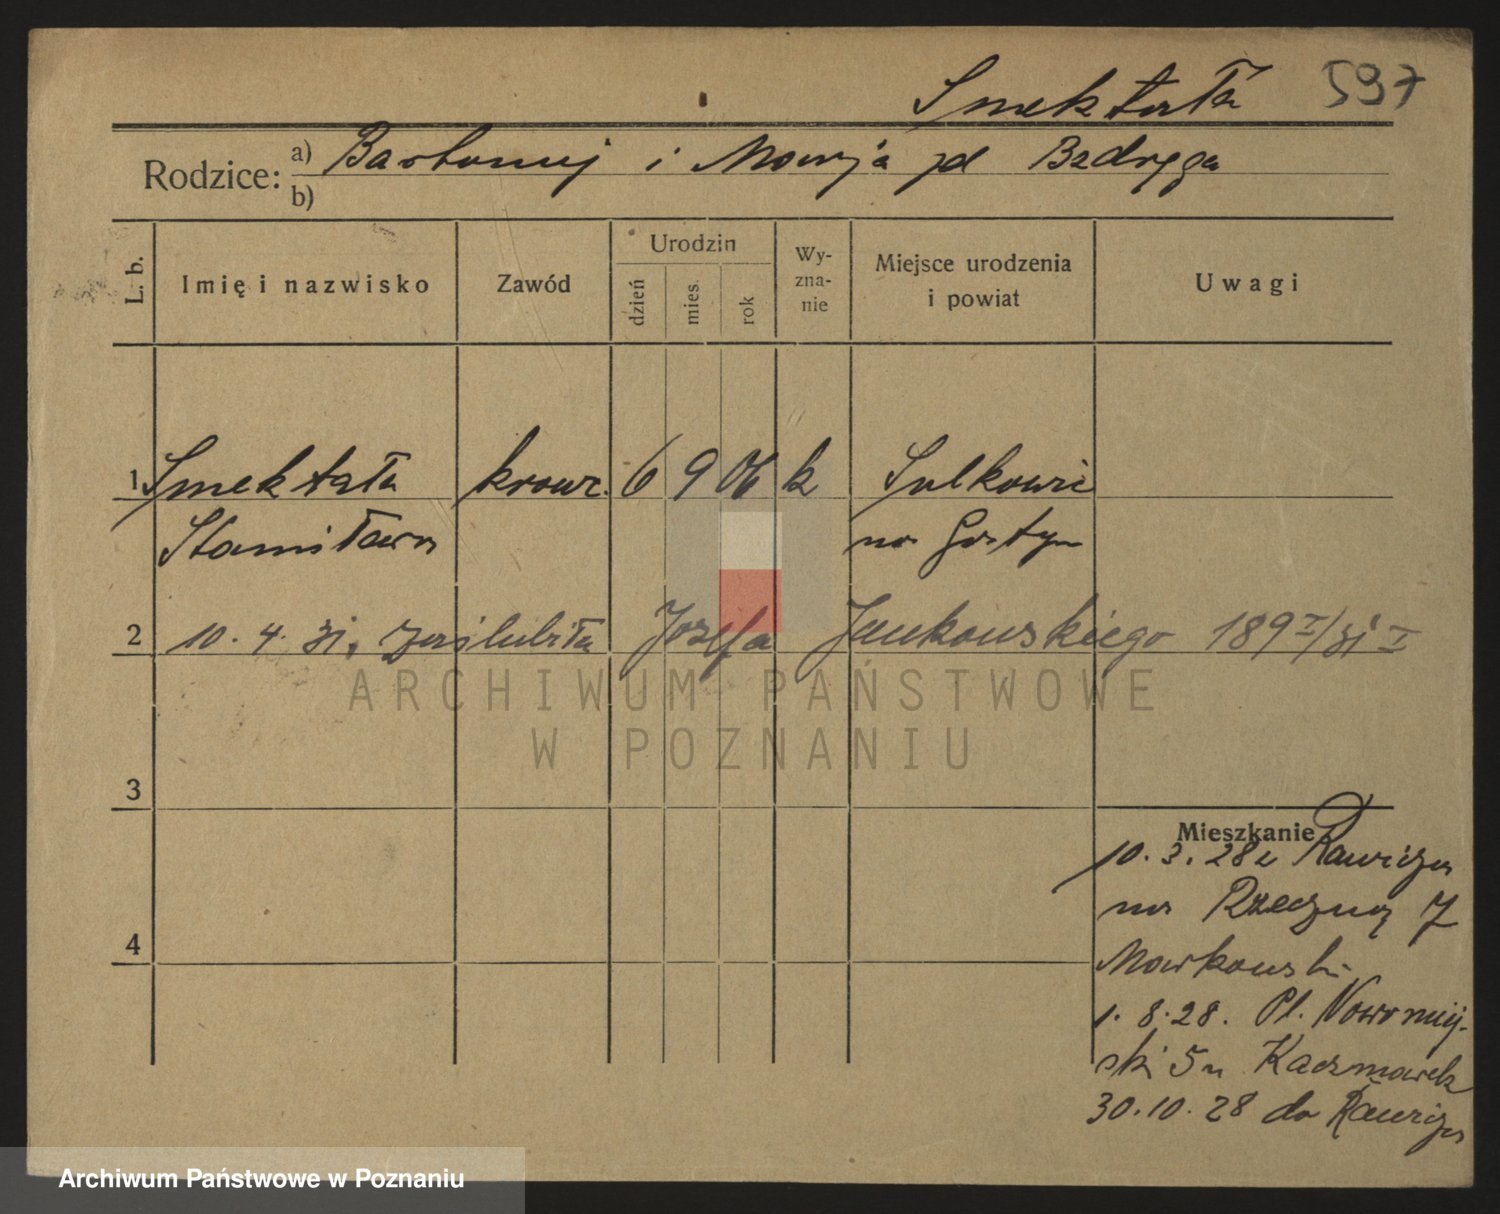 Smektała 597
Rodzice: a) Bartłomiej i Marja zd Bzdręga
b)
L. b. Imię i nazwisko Zawód Urodzin dzień mies. rok Wy-zna-nie Miejsce urodzenia i powiat Uwagi
1 Smektała krawc. 6 9 06 k Sulkowic
Stanisława na Gostyń
2 10. 4. 31, zaślubiła Józefa Jankowskiego 189 I/31 I
ARCHIWUM PAŃSTWOWE
W POZNANIU
3
Mieszkanie
10. 3. 28 z Rawicza
na Rzeczną 7
4
Markowski
1. 8. 28. Pl. Nowomiej-
ski 5 u Kaczmarek
30. 10. 28 do Rawicza
Archiwum Państwowe w Poznaniu